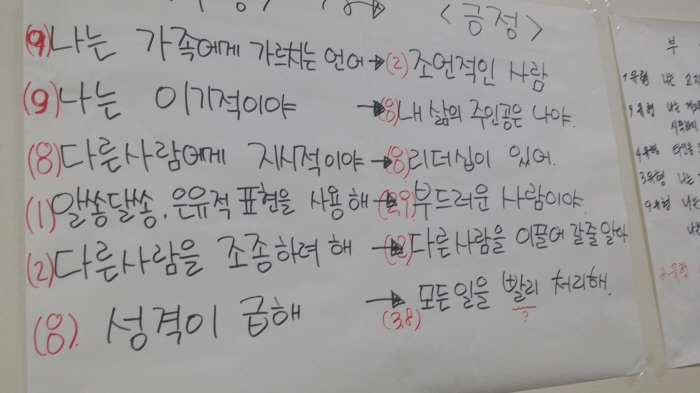 <긍정>
(9)나는 가족에게 가르치는 언어→(2)조언적인 사람
(9)나는 이기적이야 →(8)내 삶의 주인공은 나야.
(8)다른사람에게 지시적이야→(8)리더십이 있어.
(1)알쏭달쏭, 은유적 표현을 사용해→(2,9)부드러운 사람이야
(2)다른사람을 조종하려 해 →다른사람을 이끌어 갈줄 알아
(8). 성격이 급해 →(3,8) 모든일을 빨리 처리해.
?
부
1유형 나는
9유형 나는
4유형 타인을
3유형 나는
9유형 나는